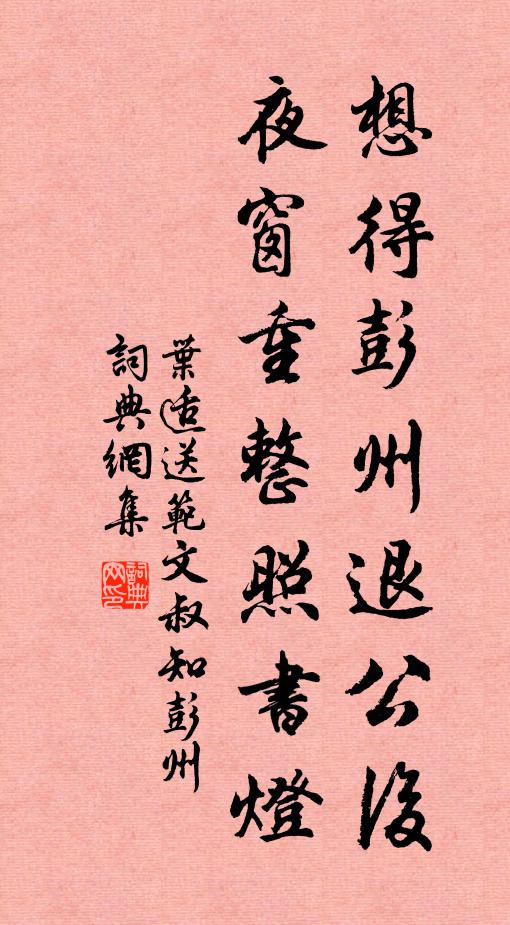 想得彭州退公後
夜窗重整照書燈
葉适送範文叔知彭州
詞典網集
詞典
网印